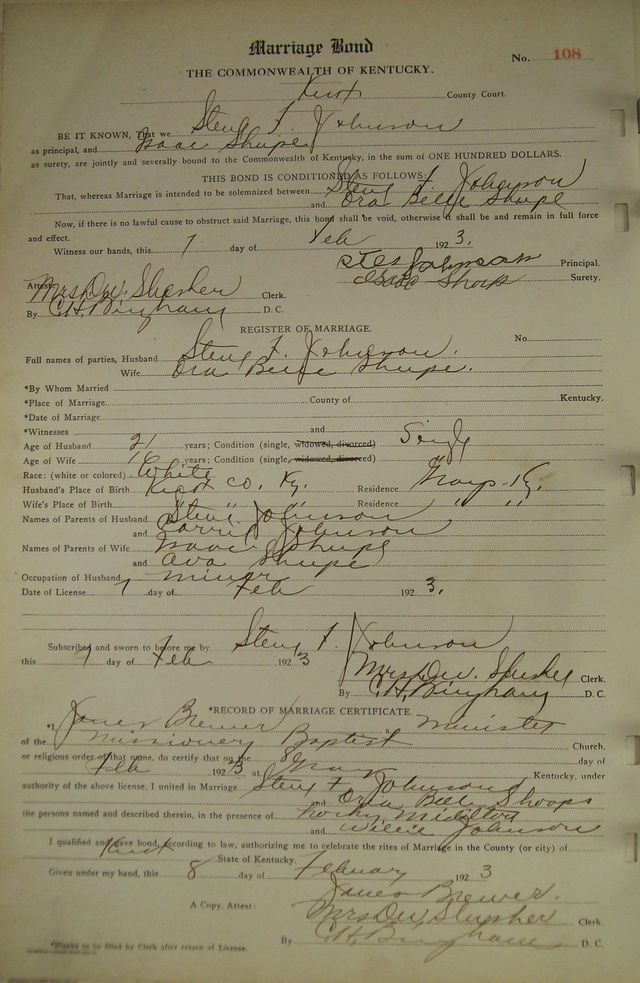 Marriage Bond
No. 108
THE COMMONWEALTH OF KENTUCKY.
Knox County Court.
BE IT KNOWN, That we Steny F. Johnson
as principal, and Isaac Shupe
as surety, are jointly and severally bound to the Commonwealth of Kentucky, in the sum of ONE HUNDRED DOLLARS.
THIS BOND IS CONDITIONED AS FOLLOWS:
That, whereas Marriage is intended to be solemnized between Steny F. Johnson
and Ora Belle Shupe
Now, if there is no lawful cause to obstruct said Marriage, this bond shall be void, otherwise it shall be and remain in full force
and effect.
Witness our hands, this 7 day of Feb 1923.
Johnson Principal.
Isaac Shoop Surety.
Attest:
Mrs Slusher Clerk.
By C.H. Bingham D. C.
REGISTER OF MARRIAGE.
No.
Full names of parties, Husband Steny F. Johnson.
Wife Ora Belle Shupe.
*By Whom Married
*Place of Marriage County of Kentucky.
*Date of Marriage
*Witnesses and
Age of Husband 21 years; Condition (single, widowed, divorced) Single
Age of Wife 16 years; Condition (single, widowed, divorced)
Race: (white or colored) White
Husband's Place of Birth Knox Co. Ky. Residence Grays Ky.
Wife's Place of Birth " " " Residence " "
Names of Parents of Husband Steve Johnson
and Johnson
Names of Parents of Wife Isaac Shupe
and Ava Shupe
Occupation of Husband Miner
Date of License 7 day of Feb 1923.
Subscribed and sworn to before me by Steny F. Johnson
this 7 day of Feb 1923
Mrs Slusher Clerk.
By C.H. Bingham D. C.
*RECORD OF MARRIAGE CERTIFICATE.
*I, James Brewer a Minister
of the Missionery Baptist Church,
or religious order of that name, do certify that on the 8 day of
Feb 1923 at Gray Kentucky, under
authority of the above license, I united in Marriage Steny F Johnson
and Ora Belle Shoops
the persons named and described therein, in the presence of
and Willie Johnson
I qualified and gave bond, according to law, authorizing me to celebrate the rites of Marriage in the County (or city) of
Knox State of Kentucky.
Given under my hand, this 8 day of February 1923
James Brewer.
A Copy, Attest: Mrs Slusher Clerk.
By C.H. Bingham D. C.
*Blanks to be filled by Clerk after return of License.